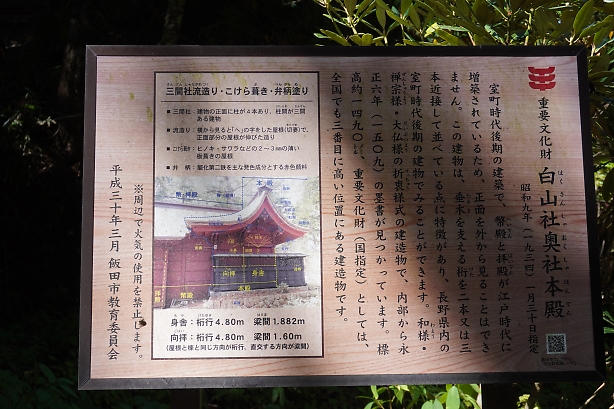 重要文化財 白山社奥社本殿
はくさんしゃおくしゃほんでん
昭和九年(一九三四)一月三十日指定
室町時代後期の建築で、幣殿と拝殿が江戸時代に
増築されているため、正面を外から見ることはでき
ません。この建物は、垂木を支える桁を二本又は三
本近接して並べている点に特徴があり、長野県内の
室町時代後期の建物でみることができます。和様・
禅宗様・大仏様の折衷様式の建造物で、内部から永
正六年(一五〇九)の墨書が見つかっています。標
高約一四九〇㍍、重要文化財(国指定)としては、
全国でも二番目に高い位置にある建造物です。
三間社流造り・こけら葺き・弁柄塗り
■三間社:建物の正面に柱が4本あり、柱間が三間
ある建物
■流造り:横から見ると「へ」の字をした屋根(切妻)で、
正面部分の屋根が伸びた造り
■こけら葺:ヒノキ・サワラなどの2~3㎜の薄い
板葺きの屋根
■弁 柄:酸化第二鉄を主な発色成分とする赤色顔料
本殿
幣・拝殿
向拝
身舎
本殿
拝殿
幣殿
身舎:桁行4.80m 梁間1.882m
向拝:桁行4.80m 梁間1.60m
(屋根と棟と同じ方向が桁行、直交する方向が梁間)
※周辺で火気の使用を禁止します。
平成三十年三月 飯田市教育委員会